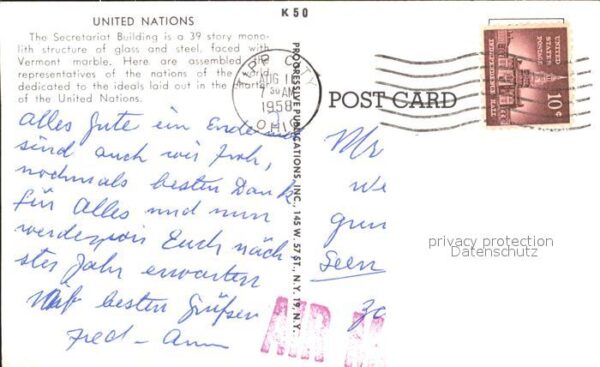 K 50
UNITED NATIONS
The Secretariat Building is a 39 story mono-
lith structure of glass and steel, faced with
Vermont marble. Here are assembled
representatives of the nations of the world
dedicated to the ideals laid out in the charter
of the United Nations.
TIPP CITY
AUG 1
AM
1958
OHIO
POST CARD
UNITED
STATES
POSTAGE
INDEPENDENCE HALL
10¢
PROGRESSIVE PUBLICATIONS, INC., 145 W. 57 ST., N.Y. 19, N.Y.
alles Gute ein Ende
sind auch wir froh,
nochmals besten Dank
für Alles und nun
werden wir Euch näch-
stes Jahr erwarten
Mit besten Grüßen
Fred - Ann
Mr
We
grun
Seen
30
AIR
privacy protection
Datenschutz